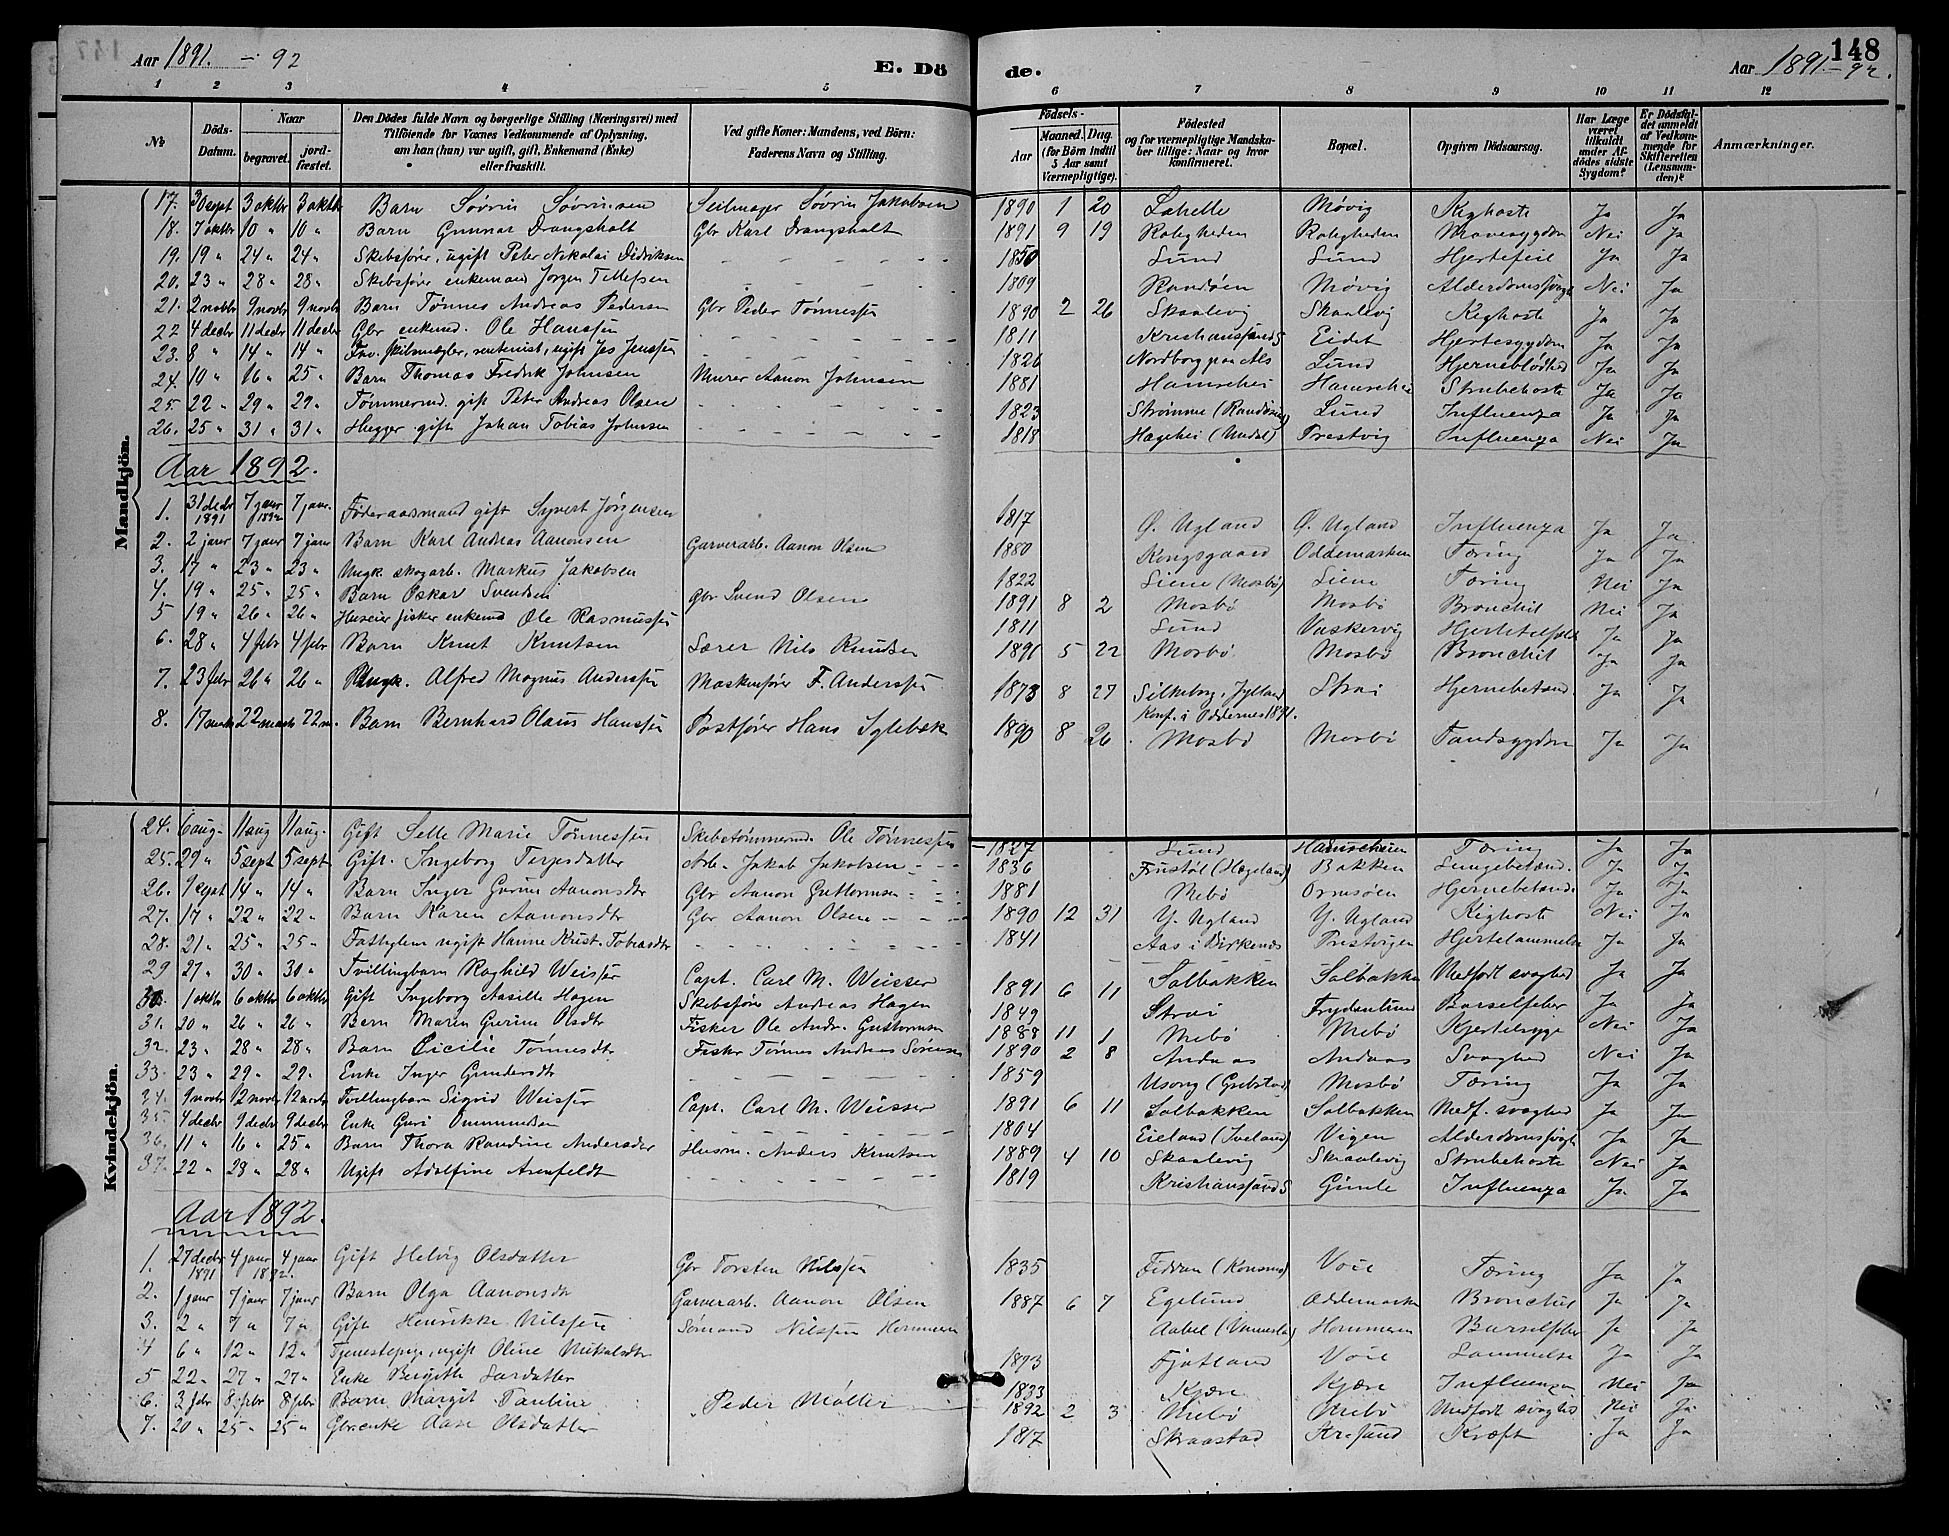 Aar 1891. – 92
E. Dö
de.
148
Aar 1891.–92.
1 2 3 4 5 6 7 8 9 10 11 12
№
Döds-Datum.
Naar begravet. jordfæstet.
Den Dödes fulde Navn og borgerlige Stilling (Næringsvei) med Tilföiende for Voxnes Vedkommende af Oplysning, om han (hun) var ugift, gift, Enkemand (Enke) eller fraskilt.
Ved gifte Koner: Mandens, ved Börn: Faderens Navn og Stilling.
Födsels- Aar Maaned. Dag. (for Börn indtil 5 Aar samt Værnepligtige).
Födested og for værnepligtige Mandskaber tillige: Naar og hvor konfirmeret.
Bopæl.
Opgiven Dödsaarsag.
Har Læge været tilkaldt under Afdödes sidste Sygdom?
Er Dödsfaldet anmeldt af Vedkommende for Skifteretten (Lensmanden)?
Anmærkninger.
Mandkjön.
17. 30 sept 3 oktbr 3 oktbr Barn Sövrin Sövrinsen Seilmager Sövrin Jakobsen 1890 1 20 Lahelle Mövig Kighoste Ja Ja
18. 7 oktbr 10 " 10 " Barn Gunnar Drangsholt Gbr Karl Drangsholt 1891 9 19 Roligheden Roligheden Mavesygdom Nei Ja
19. 19 " 24 " 24 " Skibsförer, ugift Peter Nikolai Didriksen 1850 Lund Lund Hjertefeil Ja Ja
20. 23 " 28 " 28 " Skibsförer enkemand Jörgen Tellefsen 1809 Randöen Mövig Alderdomssvagh Nei Ja
21. 2 novbr 9 novbr 9 novbr Barn Tönnes Andreas Pedersen Gbr Peder Tönnessen 1890 2 26 Skaalevig Skaalevig Kighoste Ja Ja
22 4 decbr 11 decbr 11 decbr Gbr enkemd. Ole Hanssen 1811 Kristianssand S Eidet Hjertesygdom Ja Ja
23. 8 " 14 " 14 " Fhv. skibsmægler, rentenist, ugift Jes Jenssen 1826 Nordborg paa Als Lund Hjerneblödhed Ja Ja
24. 10 " 16 " 25 " Barn Thomas Fredrik Johnsen Murer Aanon Johnsen 1881 Hamrehei Hamrehei Strubehoste Ja Ja
25. 22 " 29 " 29 " Tömmermd. gift Peter Andreas Olsen 1823 Strömme (Randösund) Lund Influenza Ja Ja
26. 25 " 31 " 31 " Hugger gift Johan Tobias Johnsen 1818 Hagehei (Undal) Prestvig Influenza Nei Ja
Aar 1892.
1. 31 decbr 1891 7 janr 1892 7 janr. Föderaadsmand gift Syvert Jörgensen 1817 Ö. Ugland Ö. Ugland Influenza Ja Ja
2. 2 janr 7 janr 7 janr Barn Karl Andreas Aanonsen Garverarb. Aanon Olsen 1880 Kongsgaard Oddemarken Tæring Ja Ja
3. 17 " 23 " 23 " Ungk. skogarb. Markus Jakobsen 1822 Liene (Mosbö) Liene Tæring Nei Ja
4. 19 " 25 " 25 " Barn Oskar Svendsen Gbr Svend Olsen 1891 8 2 Mosbö Mosbö Bronchit Nei Ja
5 19 " 26 " 26 " Huseier fisker enkemd Ole Rasmussen 1811 Lund Vaskervig Ja Ja
6. 28 " 4 febr 4 febr Barn Knut Knutsen Lærer Nils Knudsen 1891 5 22 Mosbö Mosbö Bronchit Ja Ja
7. 23 febr 26 " 26 " Ungk. Alfred Magnus Anderssen Maskinförer F. Anderssen 1873 8 27 Silkeborg, Jylland Konf. i Oddernes 1891. Strai Hjernebetænd. Ja Ja
8. 17 march 22 march 22 m. Barn Bernhard Olaus Hanssen Postförer Hans Sylebæk 1890 8 26 Mosbö Mosbö Tandsygdom Ja Ja
Kvindekjön.
24. 6 aug. 11 aug 11 aug. Gift Selle Marie Tönnessen Skibstömmermd. Ole Tönnessen 1827 Lund Hamreheien Tæring Ja Ja
25. 29 " 5 sept 5 sept Gift. Ingeborg Terjesdatter Arb. Jakob Jakobsen 1836 Frustöl (Hægeland) Bakken Lungebetænd. Ja Ja
26. 9 sept 14 " 14 " Barn Inger Gurine Aanonsdtr Gbr Aanon Guttormsen 1881 Mebö Ormsöen Hjernebetænd. Ja Ja
27. 17 " 22 " 22 " Barn Karen Aanonsdtr Gbr Aanon Olsen 1890 12 31 Y. Ugland Y. Ugland Kighoste Nei Ja
28. 21 " 25 " 25 " Fattiglem ugift Hanne Krist. Tobiasdtr 1841 Aas i Birkenæs Prestvigen Hjertelammelse Ja Ja
29 27 " 30 " 30 " Tvillingbarn Raghild Weisser Capt. Carl M. Weisser 1891 6 11 Solbakken Solbakken Medfödt svaghed Ja Ja
30. 1 oktbr 6 oktbr 6 oktbr Gift Ingeborg Aasille Hagen Skibsförer Andreas Hagen 1849 Strai Frydenlund Barselfeber Ja Ja
31. 20 " 26 " 26 " Barn Maren Gurine Olsdtr Fisker Ole Andr. Guttormsen 1888 11 1 Mebö Mebö Nei Ja
32. 23 " 28 " 28 " Barn Cicilie Tönnesdtr Fisker Tönnes Andreas Sörensen 1890 2 8 Andaas Andaas Svaghed Nei Ja
33. 23 " 29 " 29 " Enke Inger Gundersdtr 1859 Usong (Grebstad) Mosbö Tæring Ja Ja
34. 9 novbr 12 novbr 12 novbr Tvillingbarn Sigrid Weisser Capt. Carl M. Weisser 1891 6 11 Solbakken Solbakken Medf. svaghed Ja Ja
35. 4 decbr 9 decbr 9 decbr Enke Guri Ommundsen 1804 Eieland (Iveland) Vigen Alderdomssvagh Ja Ja
36. 11 " 16 " 25 " Barn Thora Randine Andersdtr Husm. Anders Knutsen 1889 4 10 Skaalevig Skaalevig Strubehoste Nei Ja
37. 22 " 28 " 28 " Ugift Adolfine Arenfeldt 1819 Kristianssand S Gimle Influenza Ja Ja
Aar 1892.
1. 27 decbr 1891 4 janr 1892. 4 janr Gift Helvig Olsdatter Gbr Torsten Nilssen 1835 Fidran (Konsmo) Voie Tæring Ja Ja
2. 1 janr 7 janr 7 janr Barn Olga Aanonsdtr Garverarb. Aanon Olsen 1887 6 7 Egelund Oddemarken Bronchit Ja Ja
3. 2 " 7 " 7 " Gift Henrikke Nilssen Sömand Nilssen Hommeren Aabel (Vennesla) Hommeren Barselfeber Ja Ja
4 6 " 12 " 12 " Tjenestepige, ugift Oline Nikolsdtr 1873 Fjotland Voie Lammelse Ja Ja
5 22 " 27 " 27 " Enke Birgithe Larsdatter 1833 Kjære Kjære Influenza Nei Ja
6. 3 febr 8 febr 8 febr Barn Margit Pauline Peder Möller 1892 2 3 Mebö Mebö Medfödt svaghed Nei Ja
7. 20 " 25 " 25 " Gbr.enke Aase Olsdatter 1817 Skraastad Krossund Kræft Ja Ja